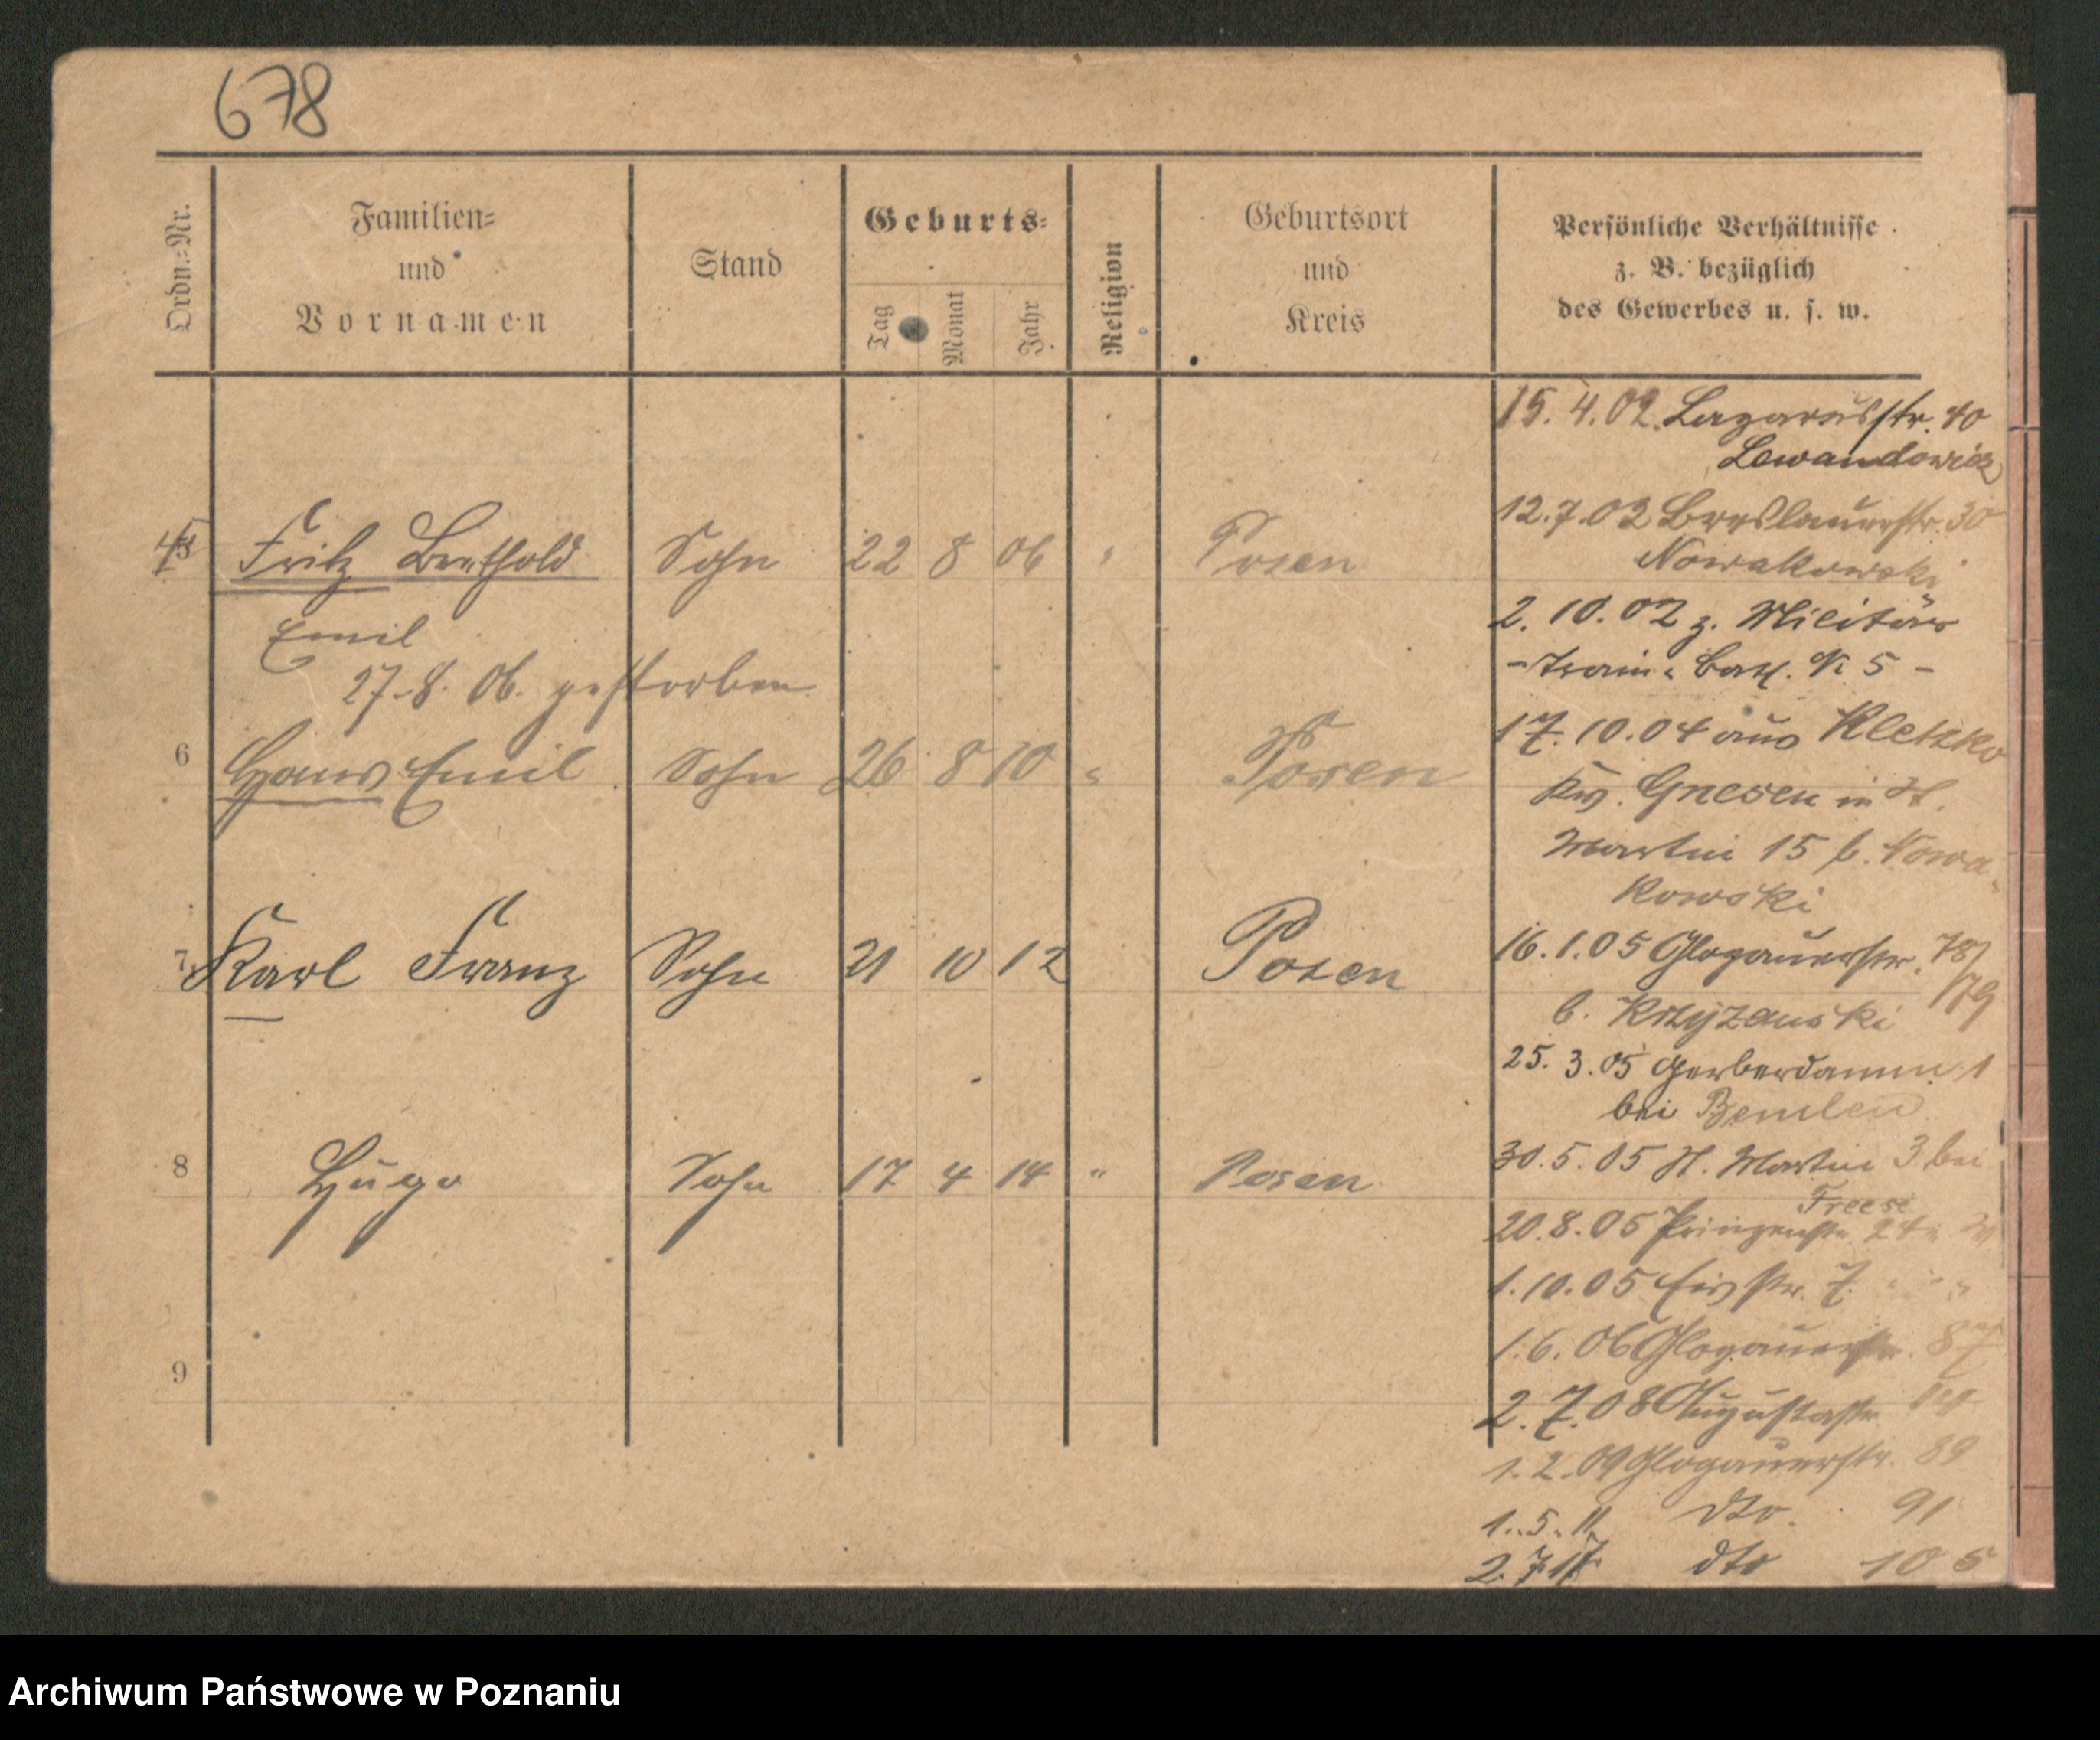 678
Ordn.-Nr.
Familien-
und
Vornamen
Stand
Geburts-
Tag
Monat
Jahr
Religion
Geburtsort
und
Kreis
Persönliche Verhältnisse
z. B. bezüglich
des Gewerbes u. s. w.
15. 4. 02. Lazarusstr. 40
Lewandowicz
12. 7. 02 Breslauerstr. 30
Nowakowski
2. 10. 02 z. Militär
- Train- Batl. № 5 -
17. 10. 04 aus Kletzko
Krs. Gnesen in St.
Martin 15 b. Nowa-
kowski
16. 1. 05 Glogauerstr. 78/
79
b. Krzyzanski
25. 3. 05 Gerberdamm 1
bei
30. 5. 05 St. Martin 3 bei
Freese
20. 8. 05 Prinzenstr. 24
1. 10. 05 7
1. 6. 06 Glogauerstr. 87
2. 7. 08 Augustastr.
1. 2. 09 Glogauerstr. 89
1. 5. 11 dto. 91
2. 7. 17 dto 105
5 Fritz Berthold Sohn 22 8 06 " Posen
Emil
27. 8. 06. gestorben
6 Hans Emil Sohn 26 8 10 " Posen
7 Karl Franz Sohn 21 10 12 Posen
8 Hugo Sohn 17 4 14 " Posen
9
Archiwum Państwowe w Poznaniu